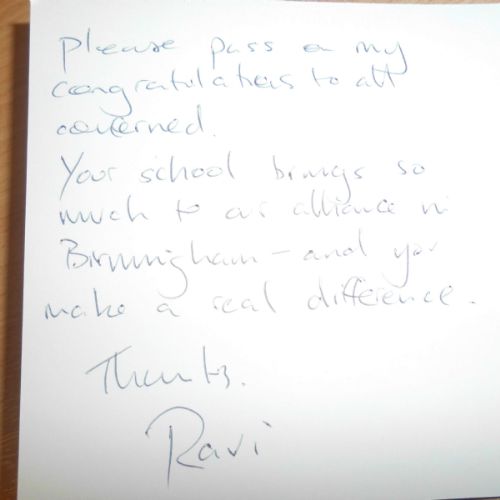 Please pass on my
congratulations to all
concerned.
Your school brings so
much to our alliance in
Birmingham - and you
make a real difference.
Thanks.
Ravi